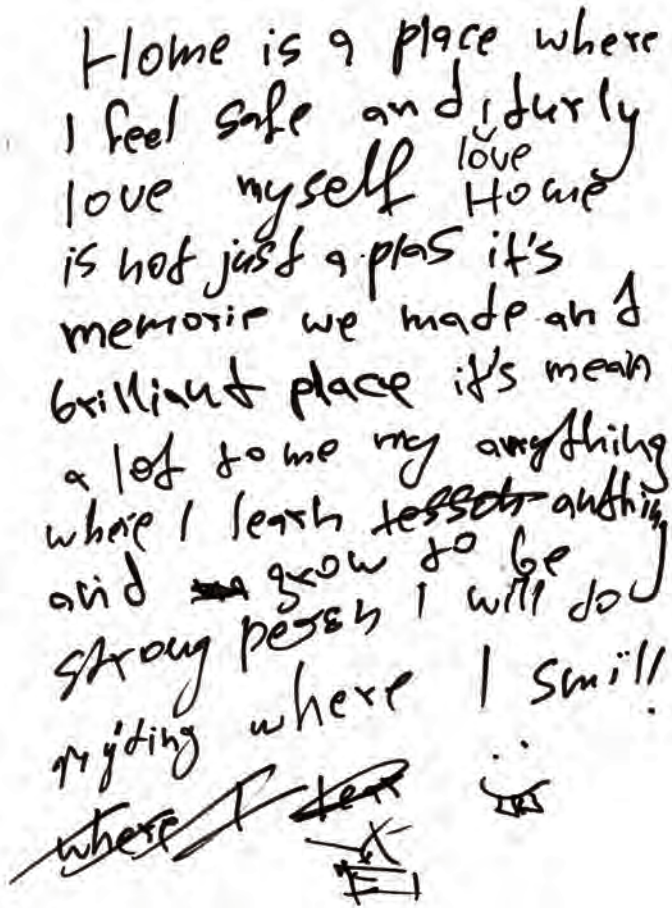 Home is a place where
I feel safe and i turly
love myself love Home
is not just a plas it's
memorie we made and
brilliant place it's mean
a lot to me my anything
where I learn lesson anthing
and grow to be
strong persen I will do
where I smill
where I lear